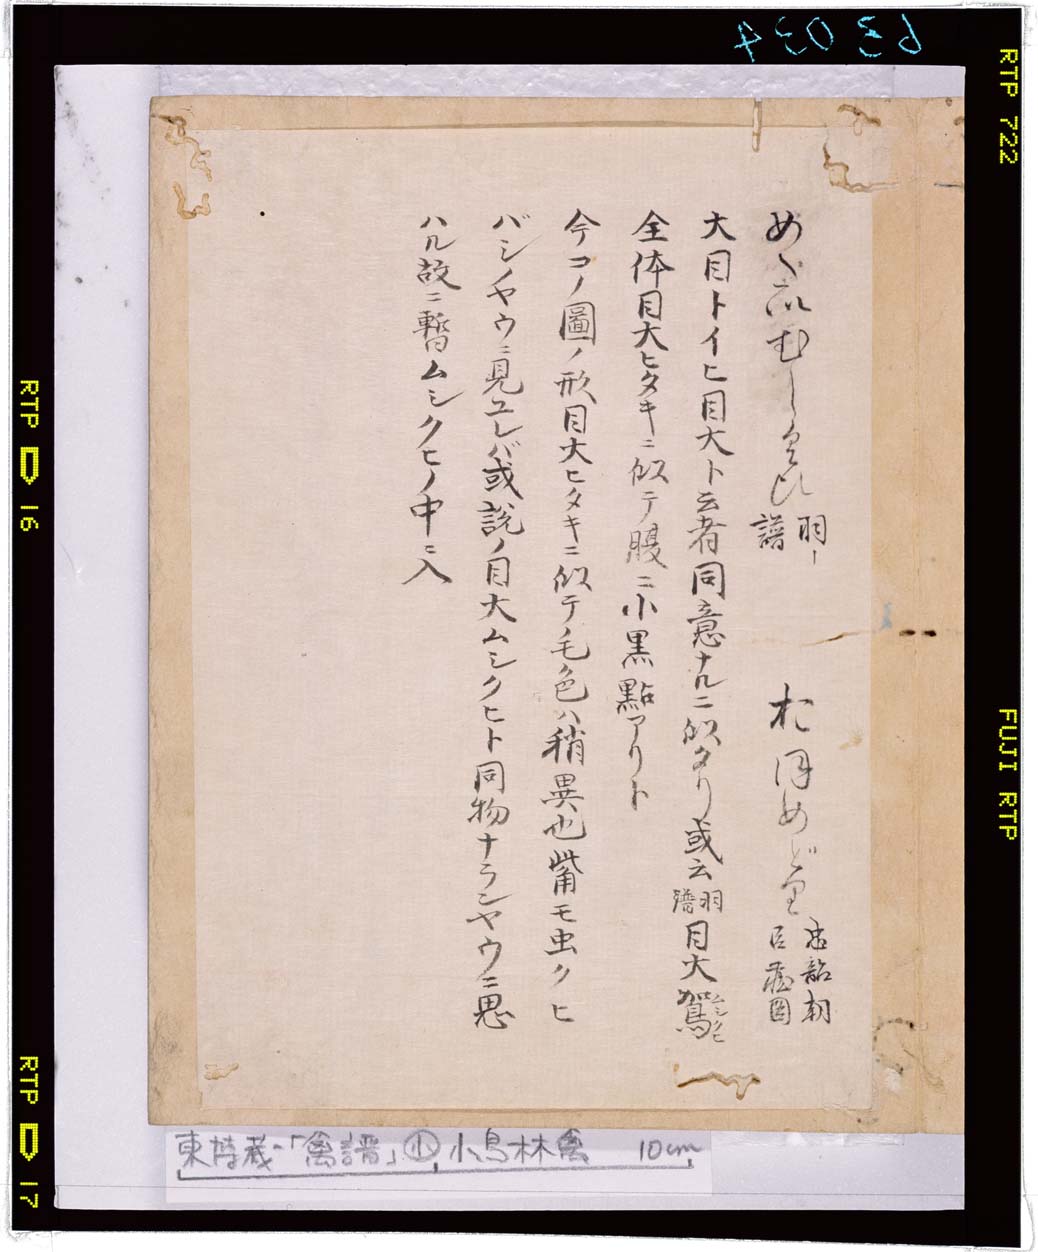 63 034
RTP 722
FUJI RTP
RTP 16
RTP 17
めくろむしくひ 羽ー譜 おほめどり 忠韶朝臣蔵図
大目トイヒ目大ト云者同意ナルニ似タリ或云羽譜目大鴑ムシクヒ
全体目大ヒタキニ似テ腹ニ小黒點アリト
今コノ圖ノ形目大ヒタキニ似テ毛色ハ稍異也觜モ虫クヒ
バシノヤウニ見ユレバ或説ノ目大ムシクヒト同物ナランヤウニ思
ハル故ニ暫ムシクヒノ中ニ入
東博蔵-「禽譜」小 小鳥林禽 10cm